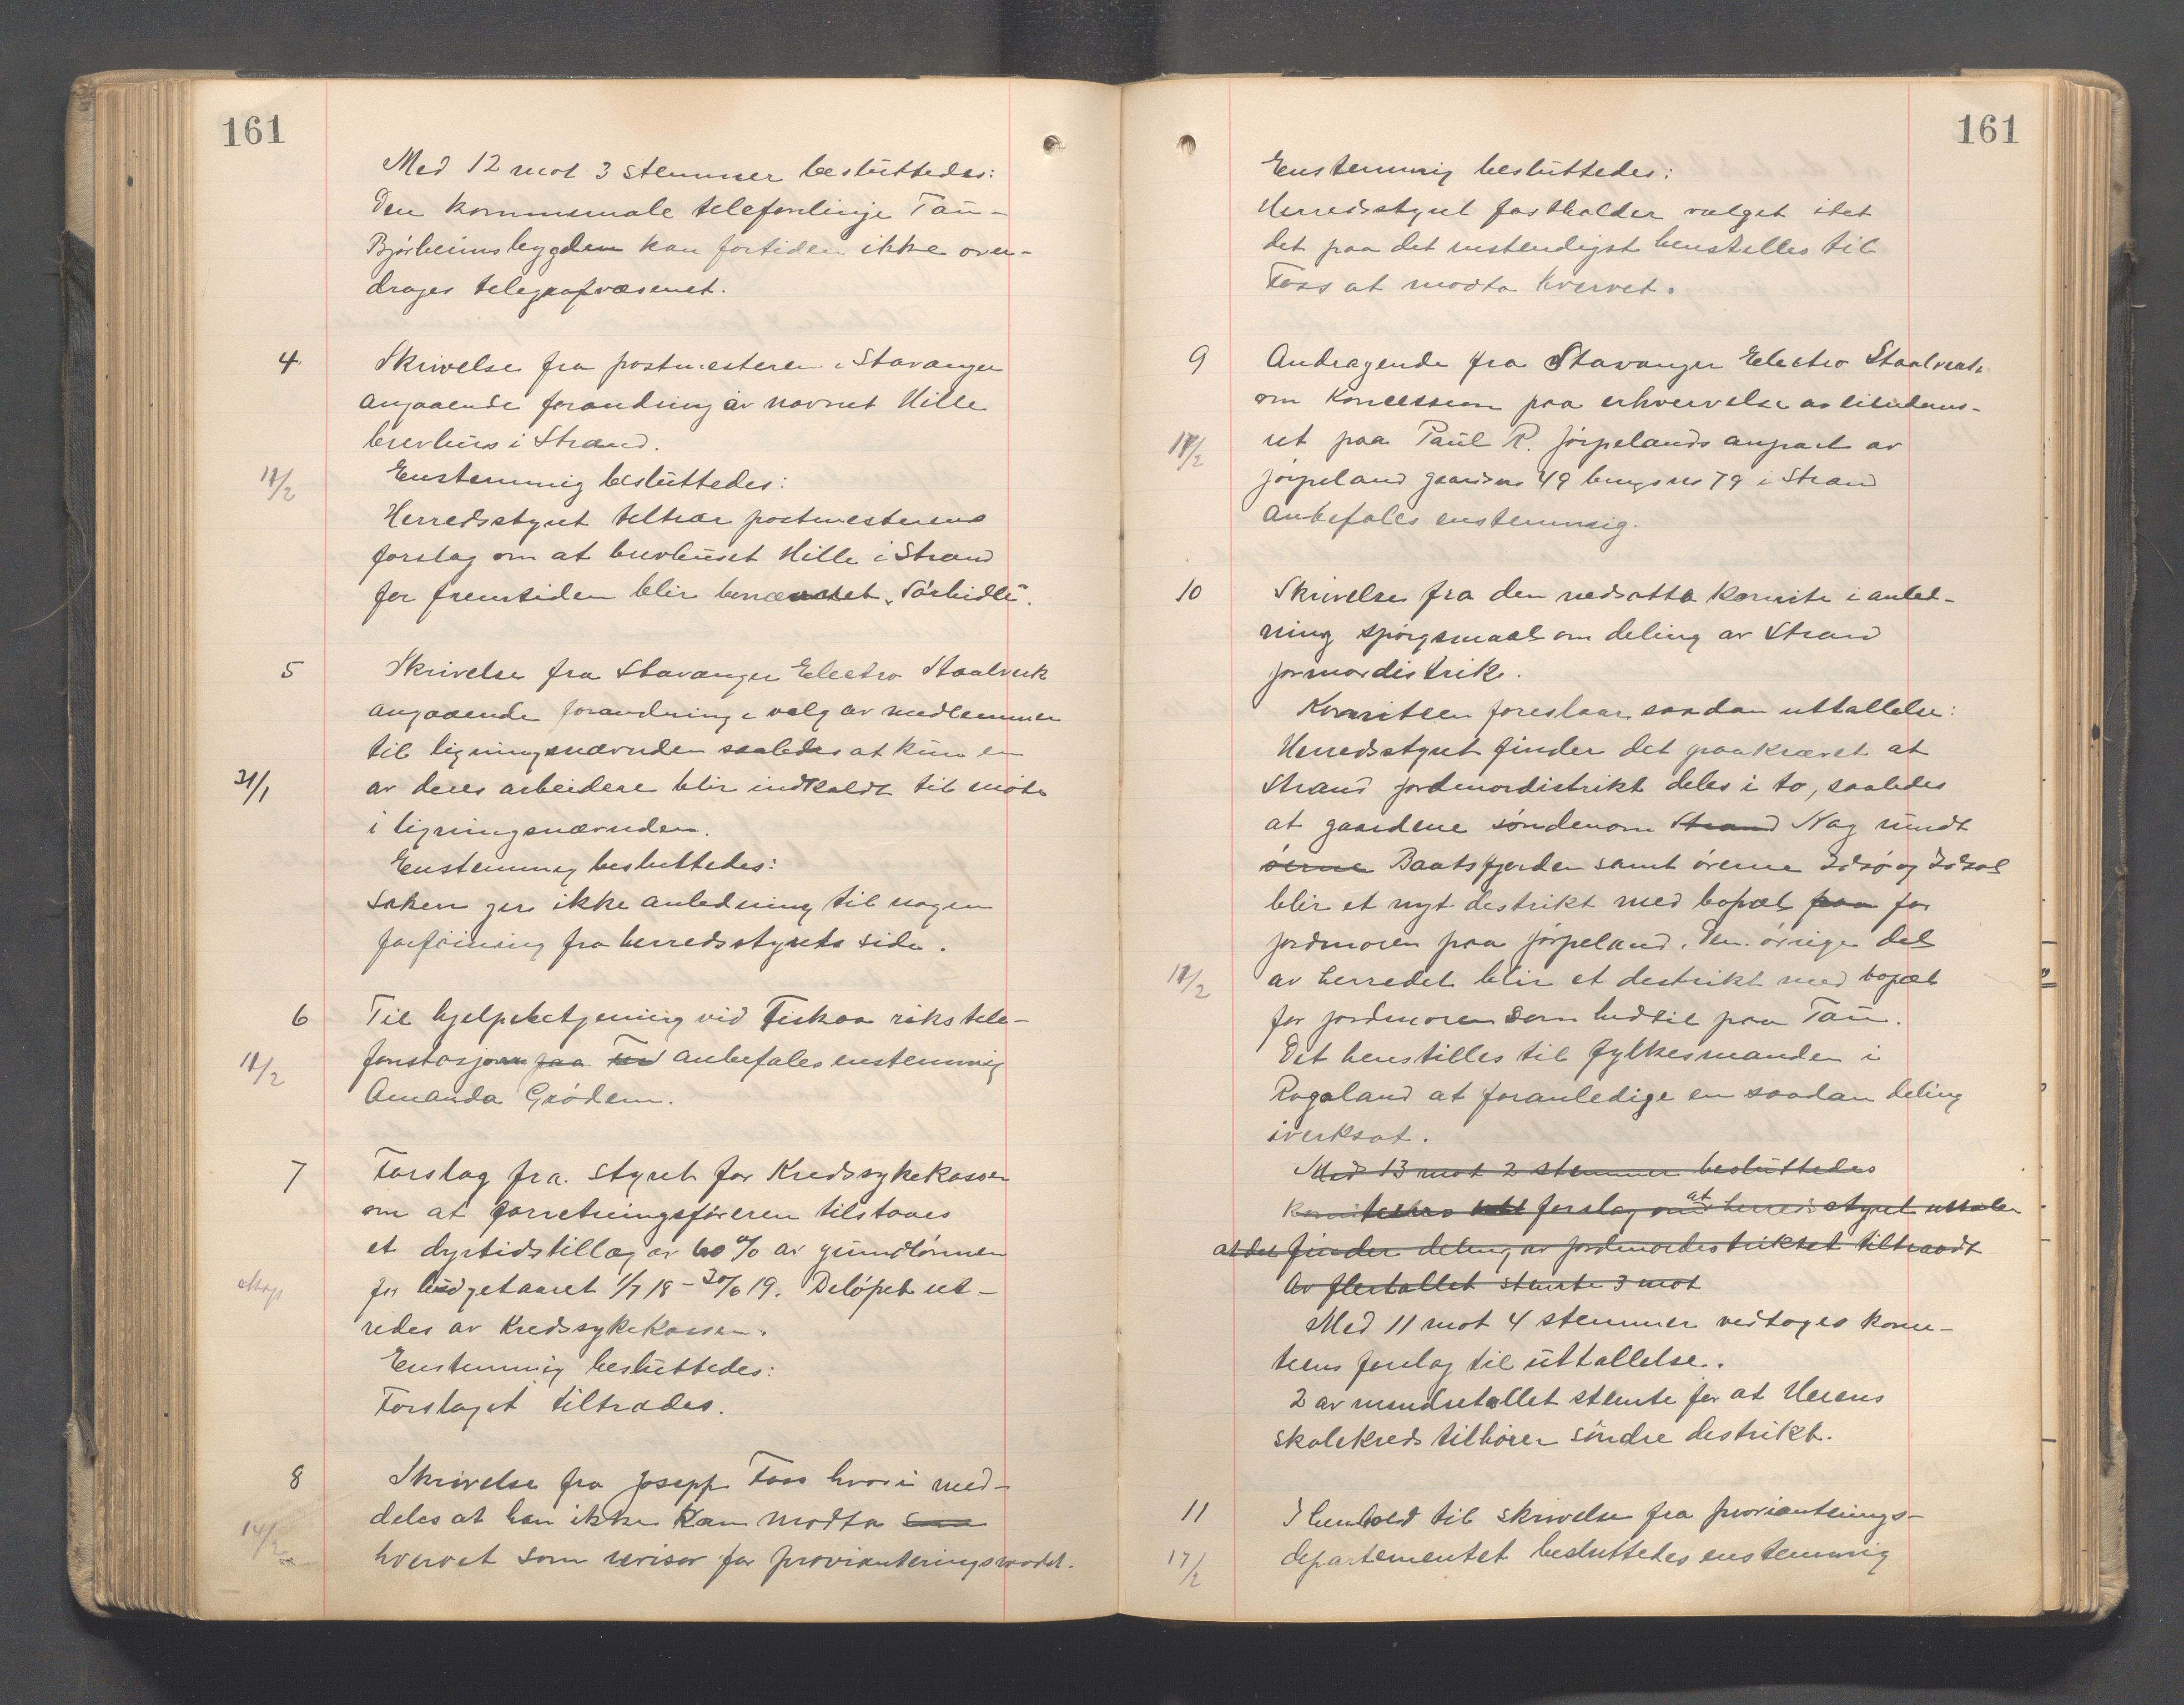 161
Med 12 mot 3 stemmer besluttedes:
Den kommunale telefonlinje Tau-
Bjørheimsbygden kan fortiden ikke over-
drages telegrafvæsenet.
4 Skrivelse fra postmesteren i Stavanger
angaaende forandring av navnet Hille
brevhus i Strand.
Enstemmig besluttedes:
Herredsstyret tiltrær postmesterens
forslag om at brevhuset Hille i Strand
for fremtiden blir benævnet „Sørhidle“.
5 Skrivelse fra Stavanger Electro Staalverk
angaaende forandring i valg av medlemmer
til ligningsnævnden saaledes at kun en
31/1 av deres arbeidere blir indkaldt til møte
i ligningsnævnden.
Enstemmig besluttedes:
Saken ger ikke anledning til nogen
forføining fra herredsstyrets side.
6 Til hjelpebetjening vid Fiskaa rikstele-
fonstasjon paa Tau anbefales enstemmig
Amanda Grødem.
7 Forslag fra styret for Kredssykekassen
om at forretningsføreren tilstaaes
et dyrtidstillæg av 60% av grundlønnen
for budgetaaret 1/7 18 – 30/6 19. Beløpet ut-
redes av Kredssykekassen.
Enstemmig besluttedes:
Forslaget tiltrædes.
8 Skrivelse fra Josepf Foss hvori med-
deles at han ikke kan modta
hvervet som revisor for provianteringsraadet.
161
Enstemmig besluttedes:
Herredsstyret fastholder valget idet
det paa det instendigst henstilles til
Foss at modta hvervet.
9 Andragende fra Stavanger Electro Staalverk
om Koncession paa erhvervelse av eiendoms-
ret paa Paul R. Jørpelands anpart av
Jørpeland gaardsno 49 brugsno 79 i Strand
anbefales enstemmig.
10 Skrivelse fra den nedsatte komite i anled-
ning spørgsmaal om deling av Strand
jormordistrik.
Komiteen foreslaar saadan uttallelse:
Herredsstyret finder det paakrævet at
Strand jordmordistrikt deles i to, saaledes
at gaardene søndenom Strand Nag rundt
øerne Baatsfjorden samt øerne Idsø og Idsal
blir et nyt destrikt med bopæl paa for
jordmoren paa Jørpeland. Den øvrige del
av herredet blir et destrikt med bopæl
for jordmoren som hidtil paa Tau.
Det henstilles til fylkesmanden i
Rogaland at foranledige en saadan deling
iverksat.
Med 13 mot 2 stemmer besluttedes
komiteens forslag om at herredsstyret uttaler
at det finder deling av jordmordestriktet tiltraadt
Av flertallet stemte 3 mot
Med 11 mot 4 stemmer vedtoges komi-
teens forslag til uttallelse.
2 av mindretallet stemte for at Heiens
skolekreds tilhører søndre destrikt.
11 I henhold til skrivelse fra provianterings-
17/2 departementet besluttedes enstemmig